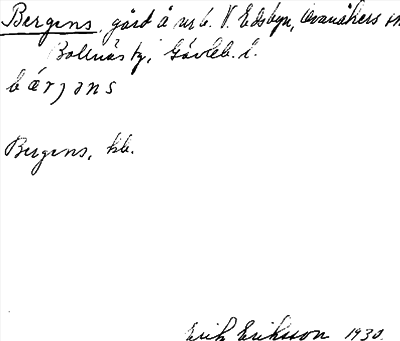 Bergens, gård å nr 6. V. Edsbyn, Ovanåkers sn.
Bollnäs tg, Gävleb. l.
bérjans
Bergens, hb.
Erik Eriksson 1930.